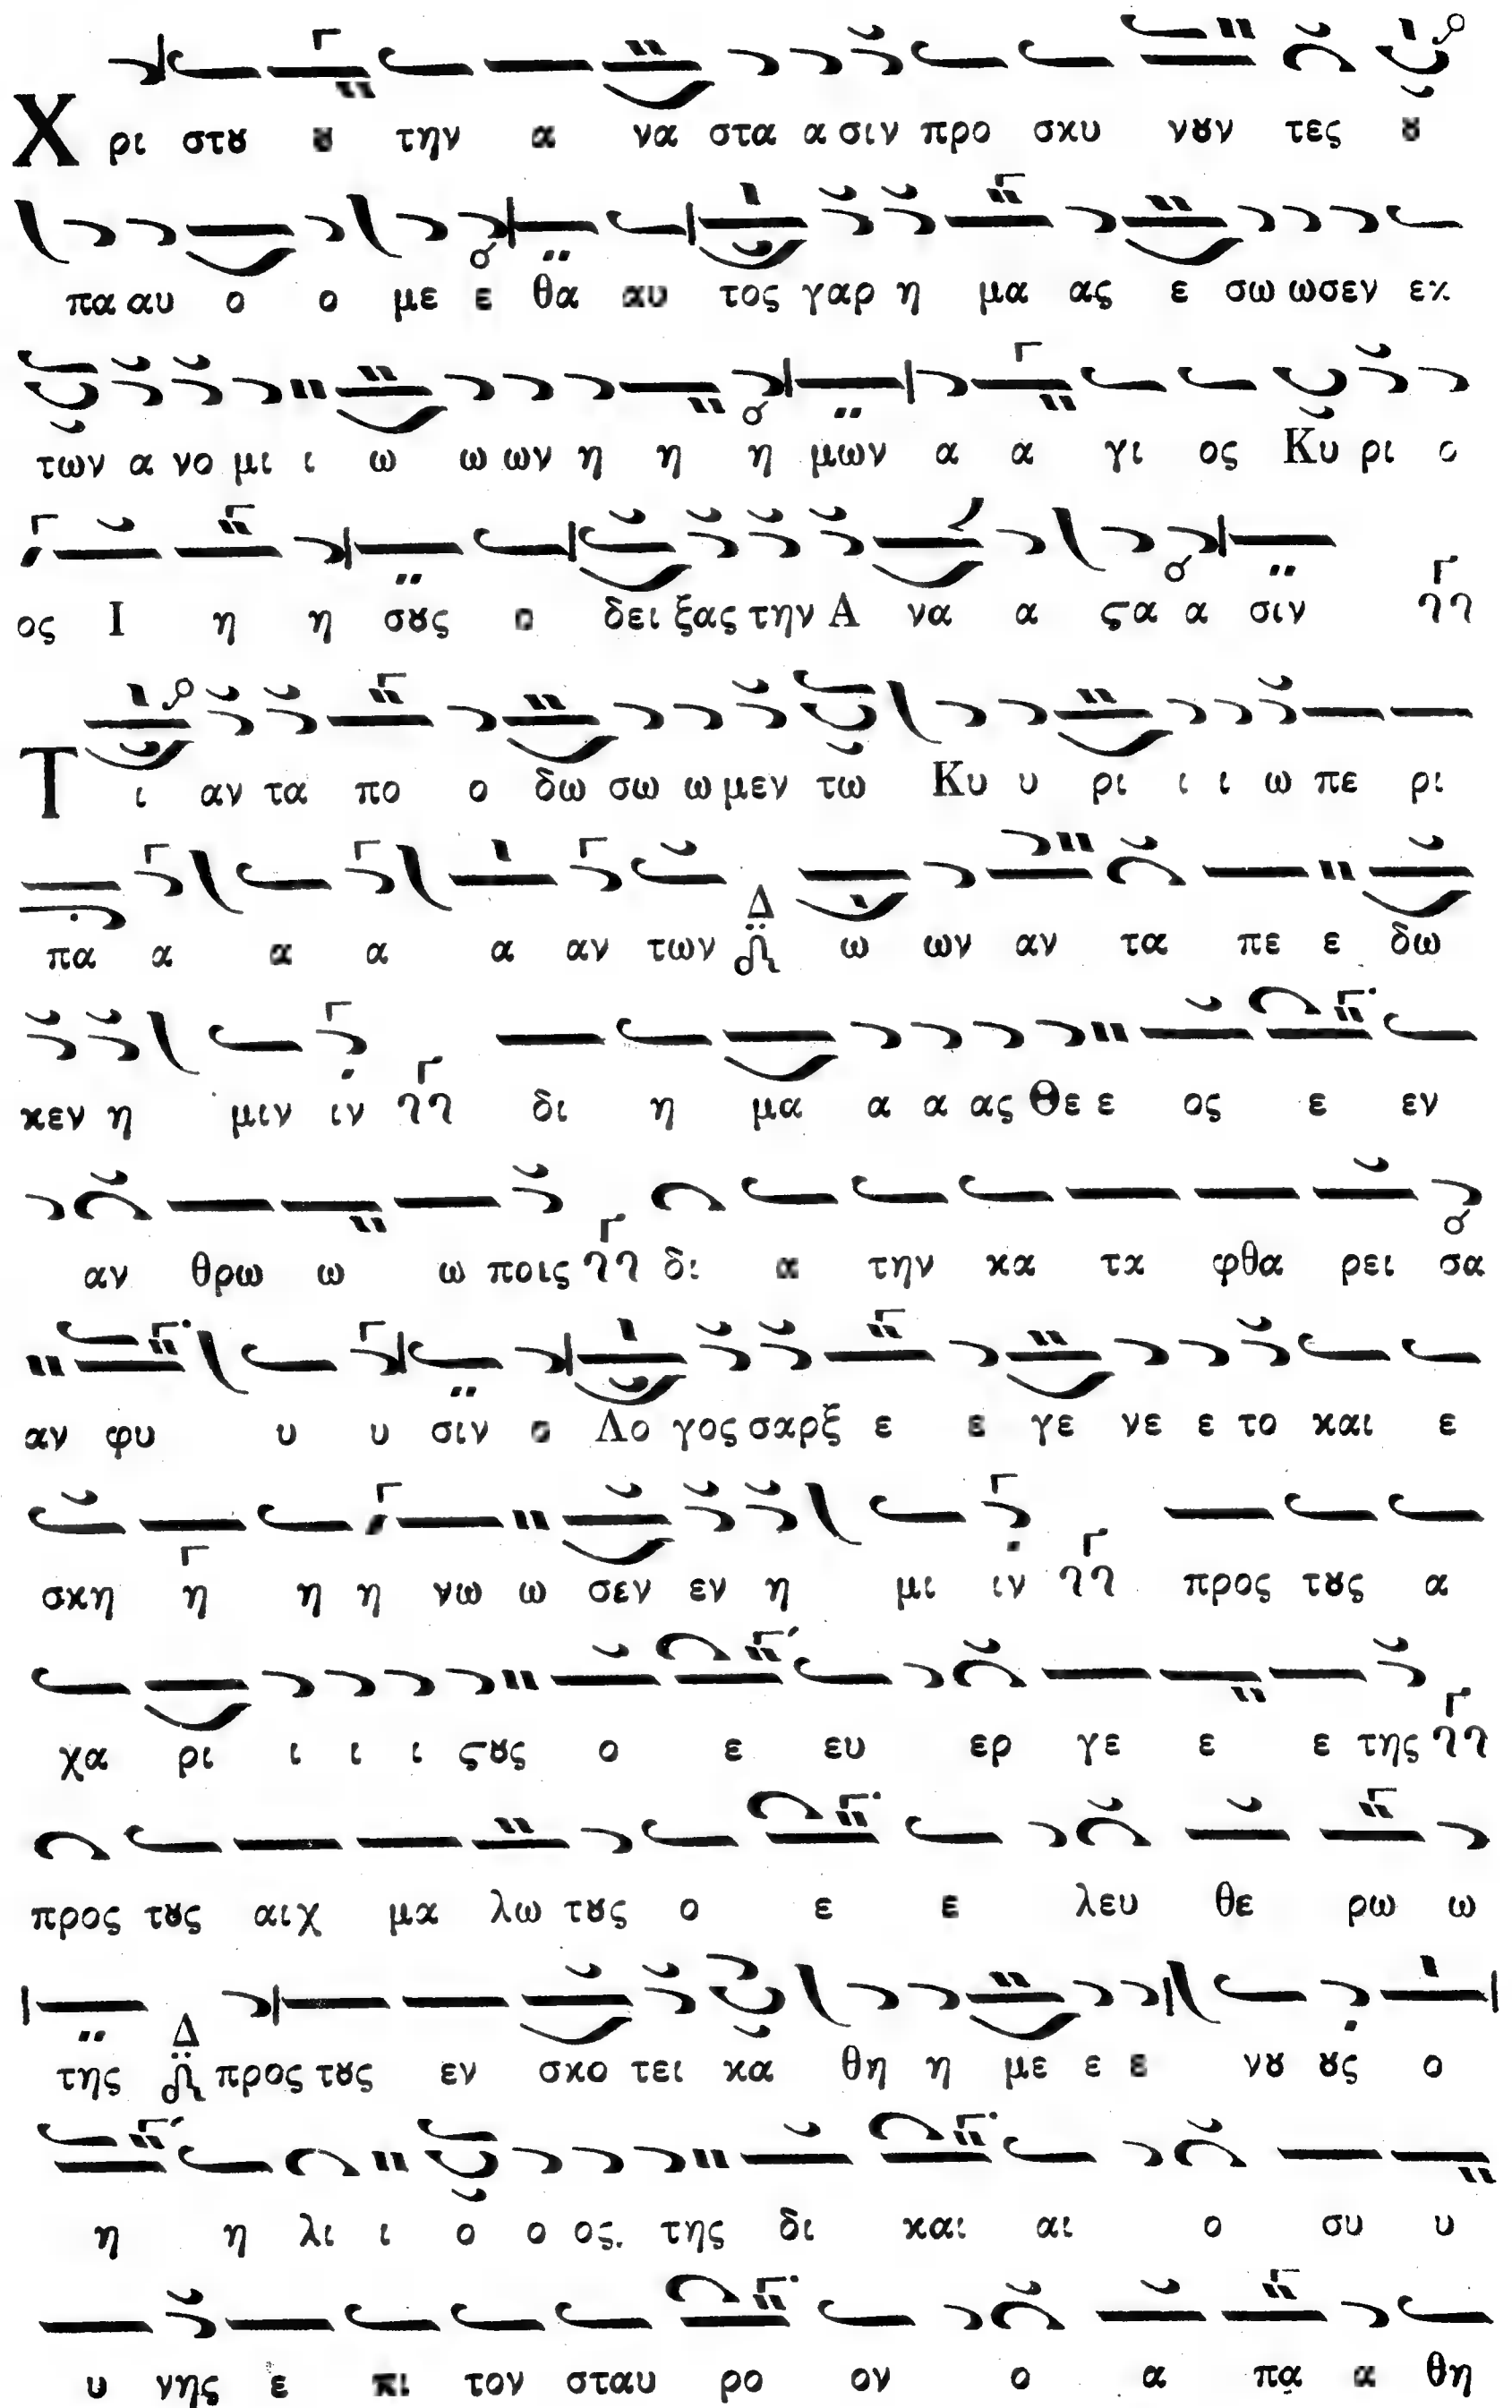 Χ ρι στȣ ȣ την α να στα α σιν προ σκυ νȣν τες ȣ
πα αυ ο ο με ε θα αυ τος γαρ η μα ας ε σω ωσεν εκ
των α νο μι ι ω ω ων η η η μων α α γι ος Κυ ρι ο
ος Ι η η σȣς ο δει ξας την Α να α ϛα α σιν
Τ ι αν τα πο ο δω σω ω μεν τω Κυ υ ρι ι ι ω πε ρι
πα α α α α αν των Δ ω ων αν τα πε ε δω
κεν η μιν ιν δι η μα α α ας Θε ε ος ε εν
αν θρω ω ω ποις δι α την κα τα φθα ρει σα
αν φυ υ υ σιν ο Λο γος σαρξ ε ε γε νε ε το και ε
σκη η η η νω ω σεν εν η μι ιν προς τȣς α
χα ρι ι ι ι ϛȣς ο ε ευ ερ γε ε ε της
προς τȣς αιχ μα λω τȣς ο ε ε λευ θε ρω ω
της Δ προς τȣς εν σκο τει κα θη η με ε ε νȣ ȣς ο
η η λι ι ο ο ος. της δι και αι ο συ υ
υ νης ε πι τον σταυ ρο ον ο α πα α θη